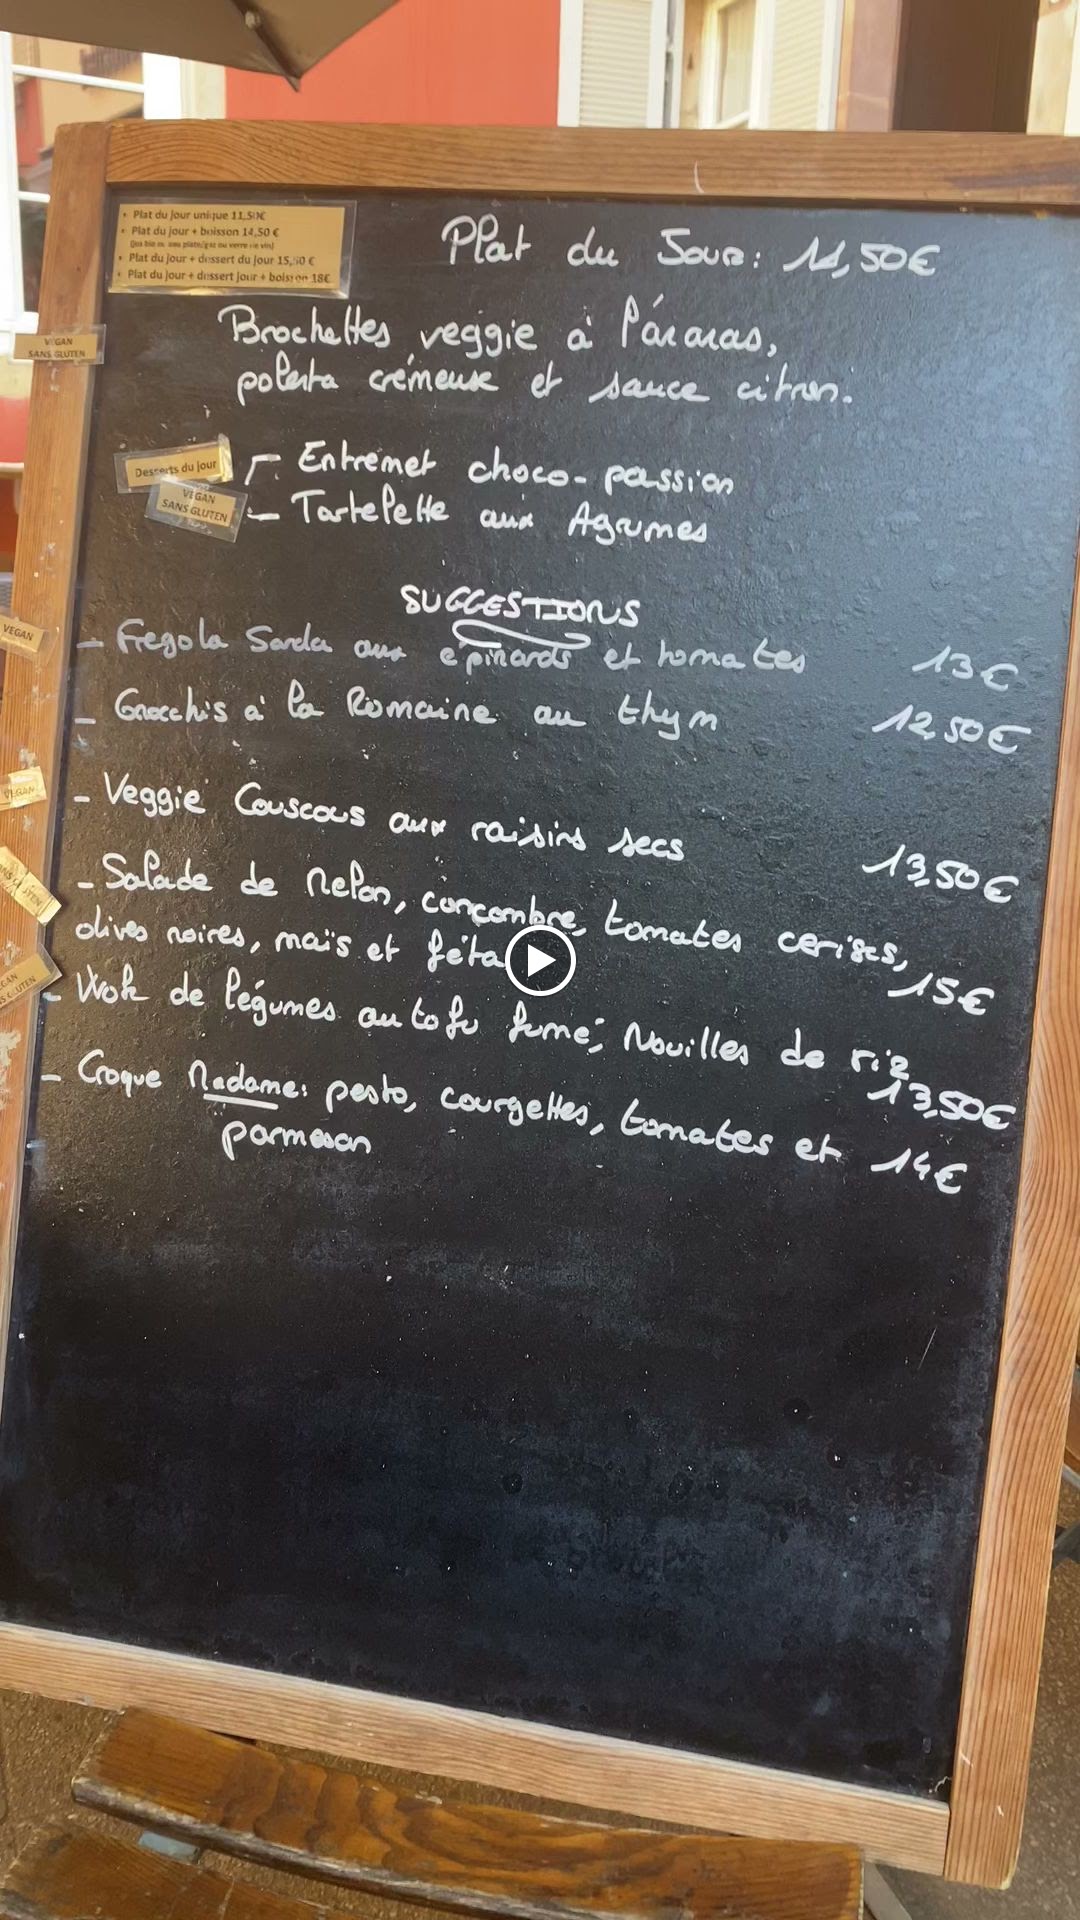 • Plat du jour unique 11,50€
• Plat du jour + boisson 14,50 €
• Plat du jour + dessert du jour 15,50 €
• Plat du jour + dessert jour + boisson 18€
Plat du Jour: 11,50€
VEGAN
SANS GLUTEN
Brochettes veggie à l'ánanas,
polenta crémeuse et sauce citron.
Desserts du jour
VEGAN
SANS GLUTEN
- Entremet choco-passion
- Tartelette aux Agrumes
SUGGESTIONS
VEGAN
- Fregola Sarda aux épinards et tomates 13€
- Gnocchis à la Romaine au thym 12,50€
VEGAN
- Veggie Couscous aux raisins secs 13,50€
- Salade de Melon, concombre, tomates cerises,
olives noires, maïs et féta 15€
- Wok de légumes au tofu fumé, Nouilles de riz
13,50€
- Croque Madame: pesto, courgettes, tomates et 14€
parmesan